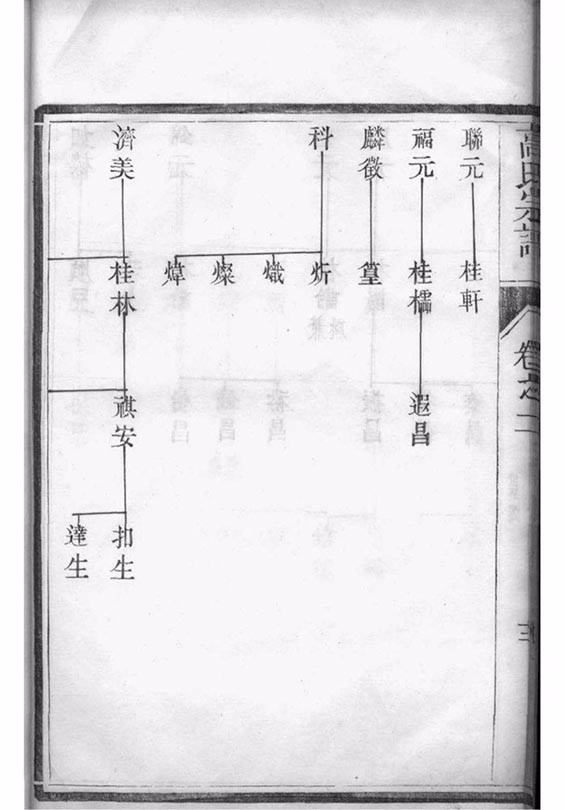 高氏宗譜
卷之二
聯元
福元
麟徵
科
濟美
桂軒
桂檽
篁
炘
熾
燦
煒
桂林
遐昌
祺安
扣生
達生